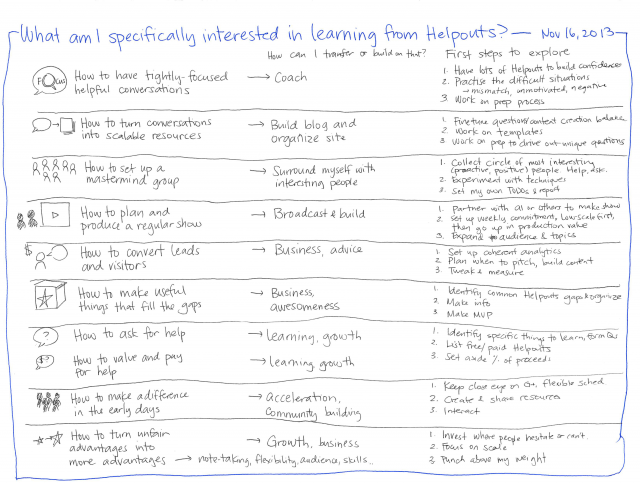 What am I specifically interested in learning from Helpouts? — Nov 16, 2013
How can I transfer or build on that?
First steps to explore
FOcus
How to have tightly-focused
helpful conversations
→ Coach
1. Have lots of Helpouts to build confidence
2. Practise the difficult situations
→ mismatch, unmotivated, negative
3. Work on prep process
How to turn conversations
into scalable resources
→ Build blog and
organize site
1. Finetune question/context creation balance
2. Work on templates
3. Work on prep to drive out unique questions
How to set up a
mastermind group
→ Surround myself with
interesting people
1. Collect circle of most interesting
(proactive, positive) people. Help, ask.
2. Experiment with techniques
3. Set my own TODOs & report
How to plan and
produce a regular show
→ Broadcast & build
1. Partner with or others to make show
2. Set up weekly commitment, low scale first,
then go up in production value
3. Expand to audience & topics
$
How to convert leads
and visitors
→ Business, advice
1. Set up coherent analytics
2. Plan when to pitch, build content
3. Tweak & measure
How to make useful
things that fill the gaps
→ Business,
awesomeness
1. Identify common Helpouts gaps & organize
2. Make info
3. Make MVP
?
How to ask for help
→ Learning, growth
$?
How to value and pay
for help
→ learning growth
1. Identify specific things to learn, form Qs
2. List free/paid Helpouts
3. Set aside % of proceeds
How to make a difference
in the early days
→ acceleration,
Community building
1. Keep close eye on G+, flexible sched
2. Create & share resources
3. Interact
How to turn unfair
advantages into
more advantages → note-taking, flexibility, audience, skills...
→ Growth, business
1. Invest where people hesitate or can't.
2. Focus on scale
3. Punch above my weight